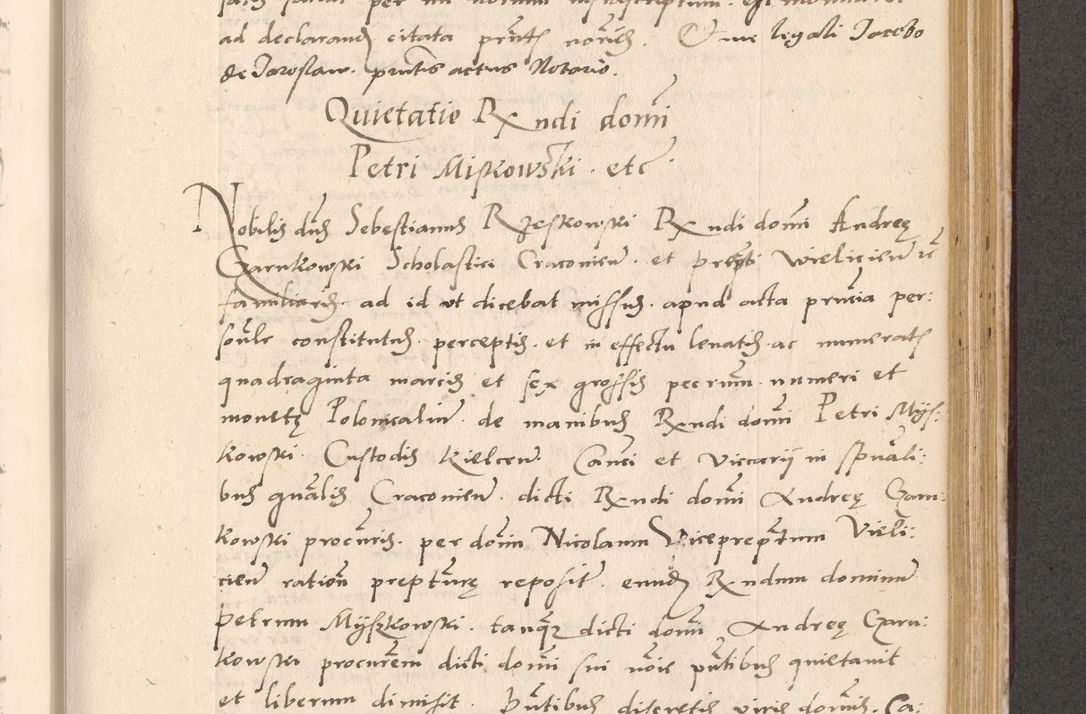 ad declarand citata prnts noveris. Que legali Jacobo
de Jaroslaw. prntis actus Notario.
Quietatio Rndi domi
Petri Miskowski. etc.
Nobilis dns Sebestianus Rzeskowski Rndi domi Andreę
Czarnkowski Scholastici Cracovien. et prepti Wielicien
familiaris. ad id ut dicebat missus. apud acta prnsia per:
solr constitutus. perceptis. et in effectu levatis. ac numerats
quadraginta marcis et sex grossis pecrum. numeri et
monetę Polonicalium. de manibus Rndi domi Petri Mys:
kowski. Custodis Kielcen. Canci et Viccarij in spuali:
bus gnalis Cracovien. dicti Rndi domi Andreę Czarn:
kowski procuris. per domin Nicolaum Vicepreptum Vieli:
cien ration prepturę reposit. eund Rndum dominum
Petrum Myszkowski. tanq dicti domi Andreę Czarn:
kowski procurem dicti domi sui nois pntibus quietavit
et liberum dimisit. Pntibus discretis viris domis. Ca: